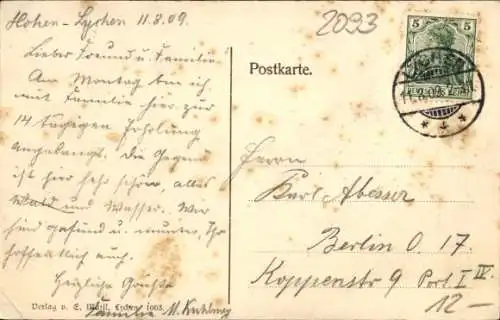 Hohen-Lychen 11.8.09.
Lieber Freund u. Familie.
Am Montag bin ich
mit Familie hier zur
14 tägigen Erholung
angelangt. Die Gegend
ist hier sehr schön, alles
Wald und Wasser. Wir
sind gesund u. munter, Ihr
hoffentlich auch.
Herzliche Grüße
Familie M.
Verlag v. E. Lychen 1003.
2093
Postkarte.
5 5
LYCHEN
Herrn
Karl Abesser
Berlin O. 17.
Koppenstr 9 Port I IV.
12-